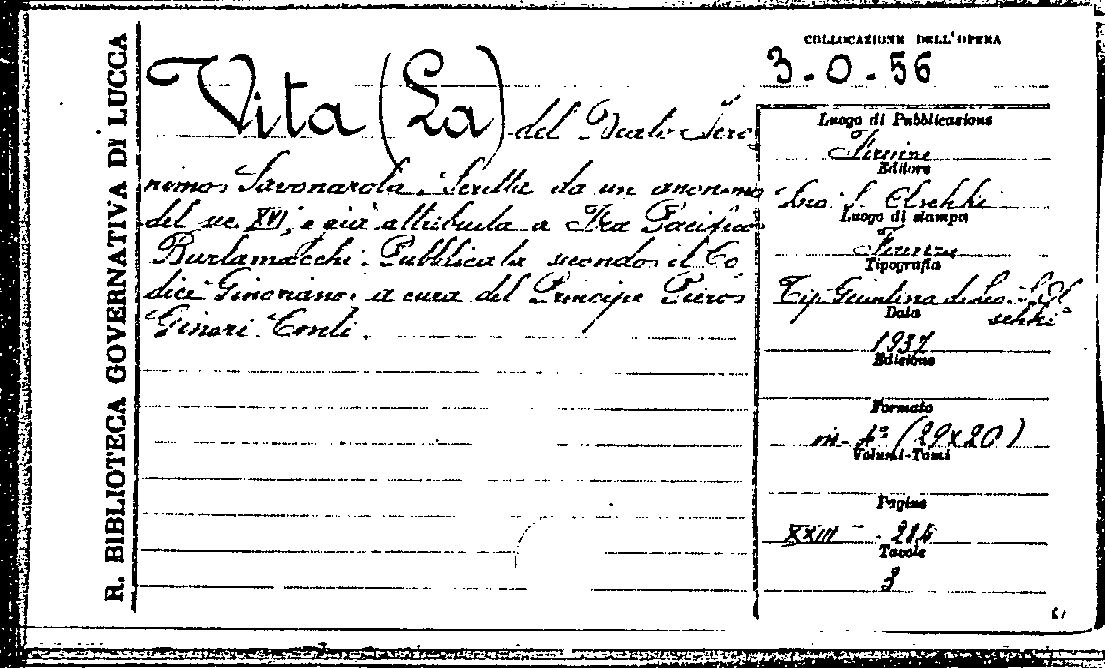 R. BIBLIOTECA GOVERNATIVA DI LUCCA
COLLOCAZIONE DELL'OPERA
3.0.56
Vita (La) del Beato Jero
nimo Savonarola. Scritta da un anonimo
del sec. XVI, e già attribuita a Fra Pacifico
Burlamacchi. Pubblicata secondo il Co
dice Ginoriano, a cura del Principe Piero
Ginori Conti.
Luogo di Pubblicazione
Firenze
Editore
Leo. S. Olschki
Luogo di stampa
Firenze
Tipografia
Tip. Giuntina di Leo. S. Ol
schki
Data
1937
Edizione
Formato
in-4° (29x20)
Volumi-Tomi
Pagine
XXIII -
Tavole
3